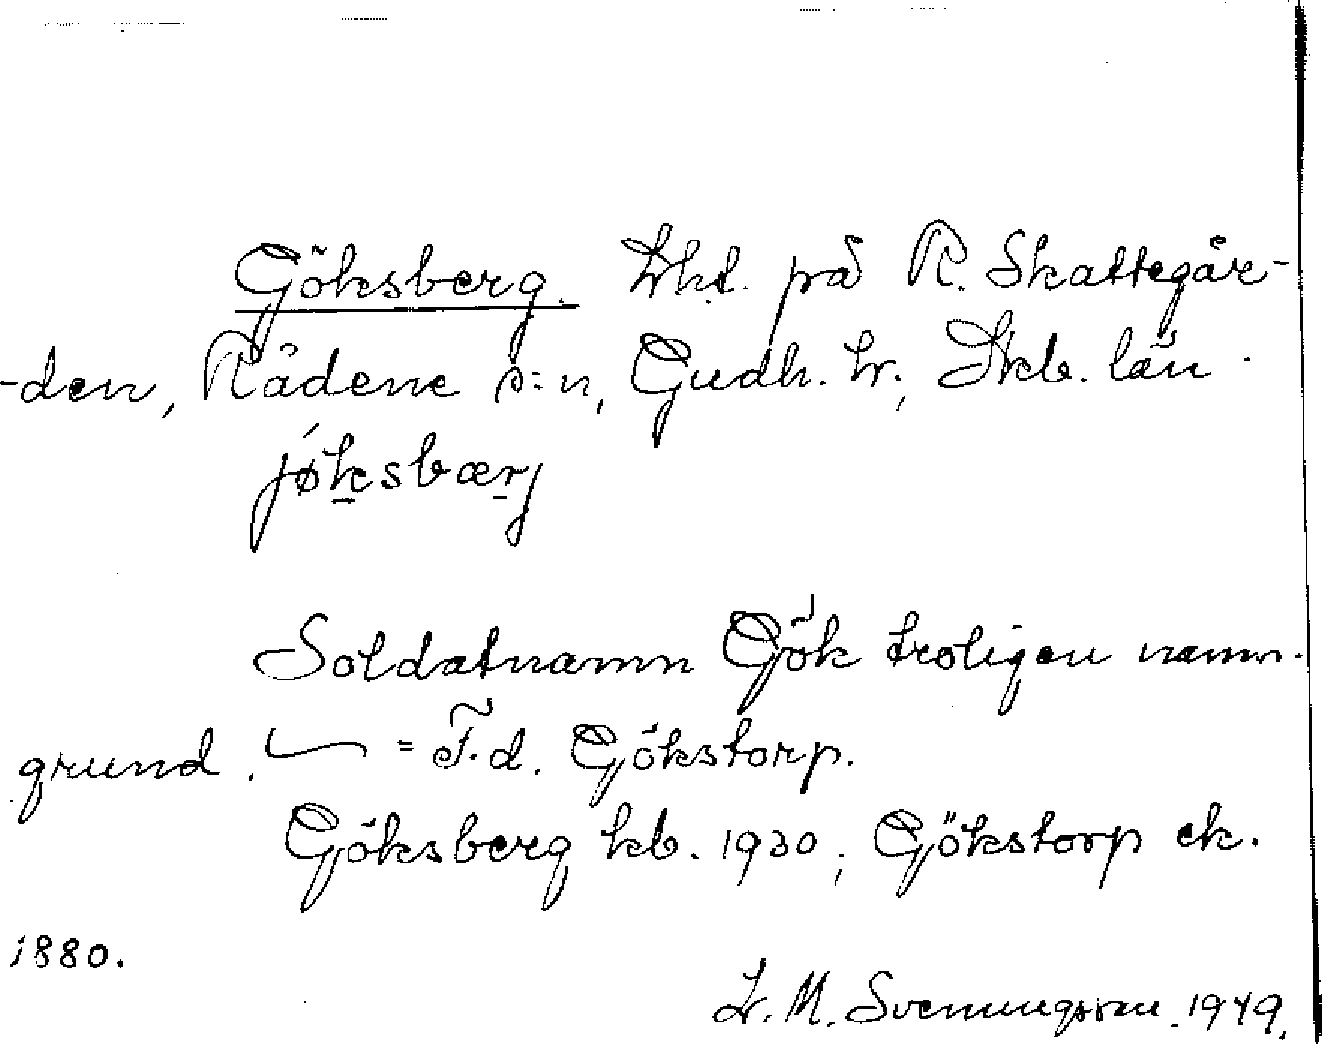 Göksberg. Lht. på R. Skattegår-
-den, Rådene s:n, Gudh. hr., Skb. län
jǿksbærj
Soldatnamn Gök troligen namn-
grund. = F.d. Gökstorp.
Göksberg kb. 1930; Gökstorp ek.
1880.
L. M. Svenungsson. 1949.